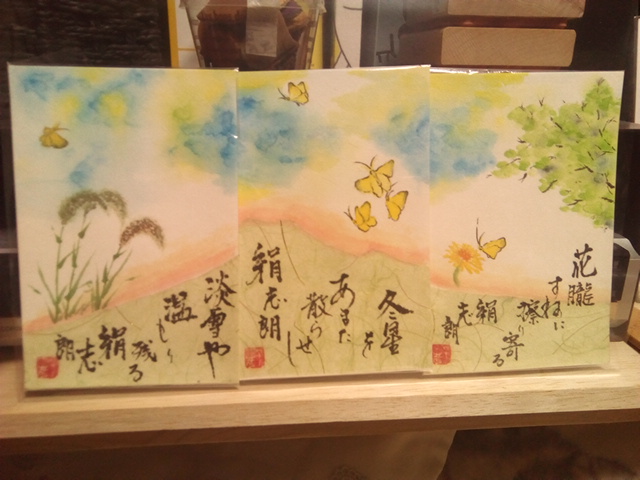 花朧
すねに
擦り寄る
絹
志朗
冬星を
あまた
散らせし
絹志朗
淡雪や
温もり
残る
絹
志
朗